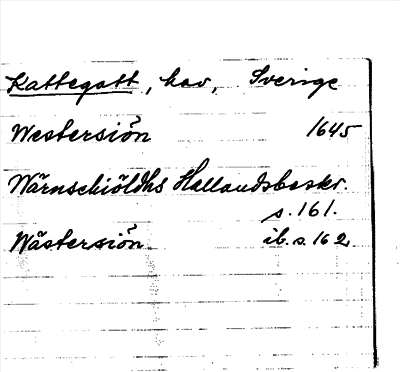 Kattegatt, hav, Sverige
Westersiön 1645
Wärnschiöldhs Hallandsbeskr.
s. 161.
Wästersiön ib. s. 162